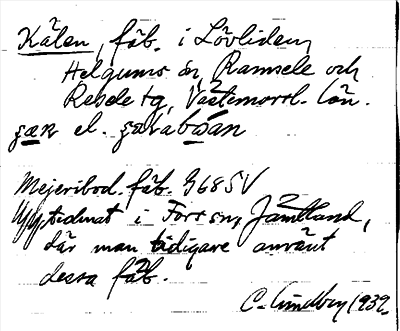 Kälen, fäb. i Lövliden,
Helgums sn, Ramsele och
Resele tg, Västernorrl. län.
el.
Mejeribod. fäb. 968 SV
Upptecknat i Fors sn, Jämtland,
där man tidigare använt
dessa fäb.
C. Lundberg 1939.